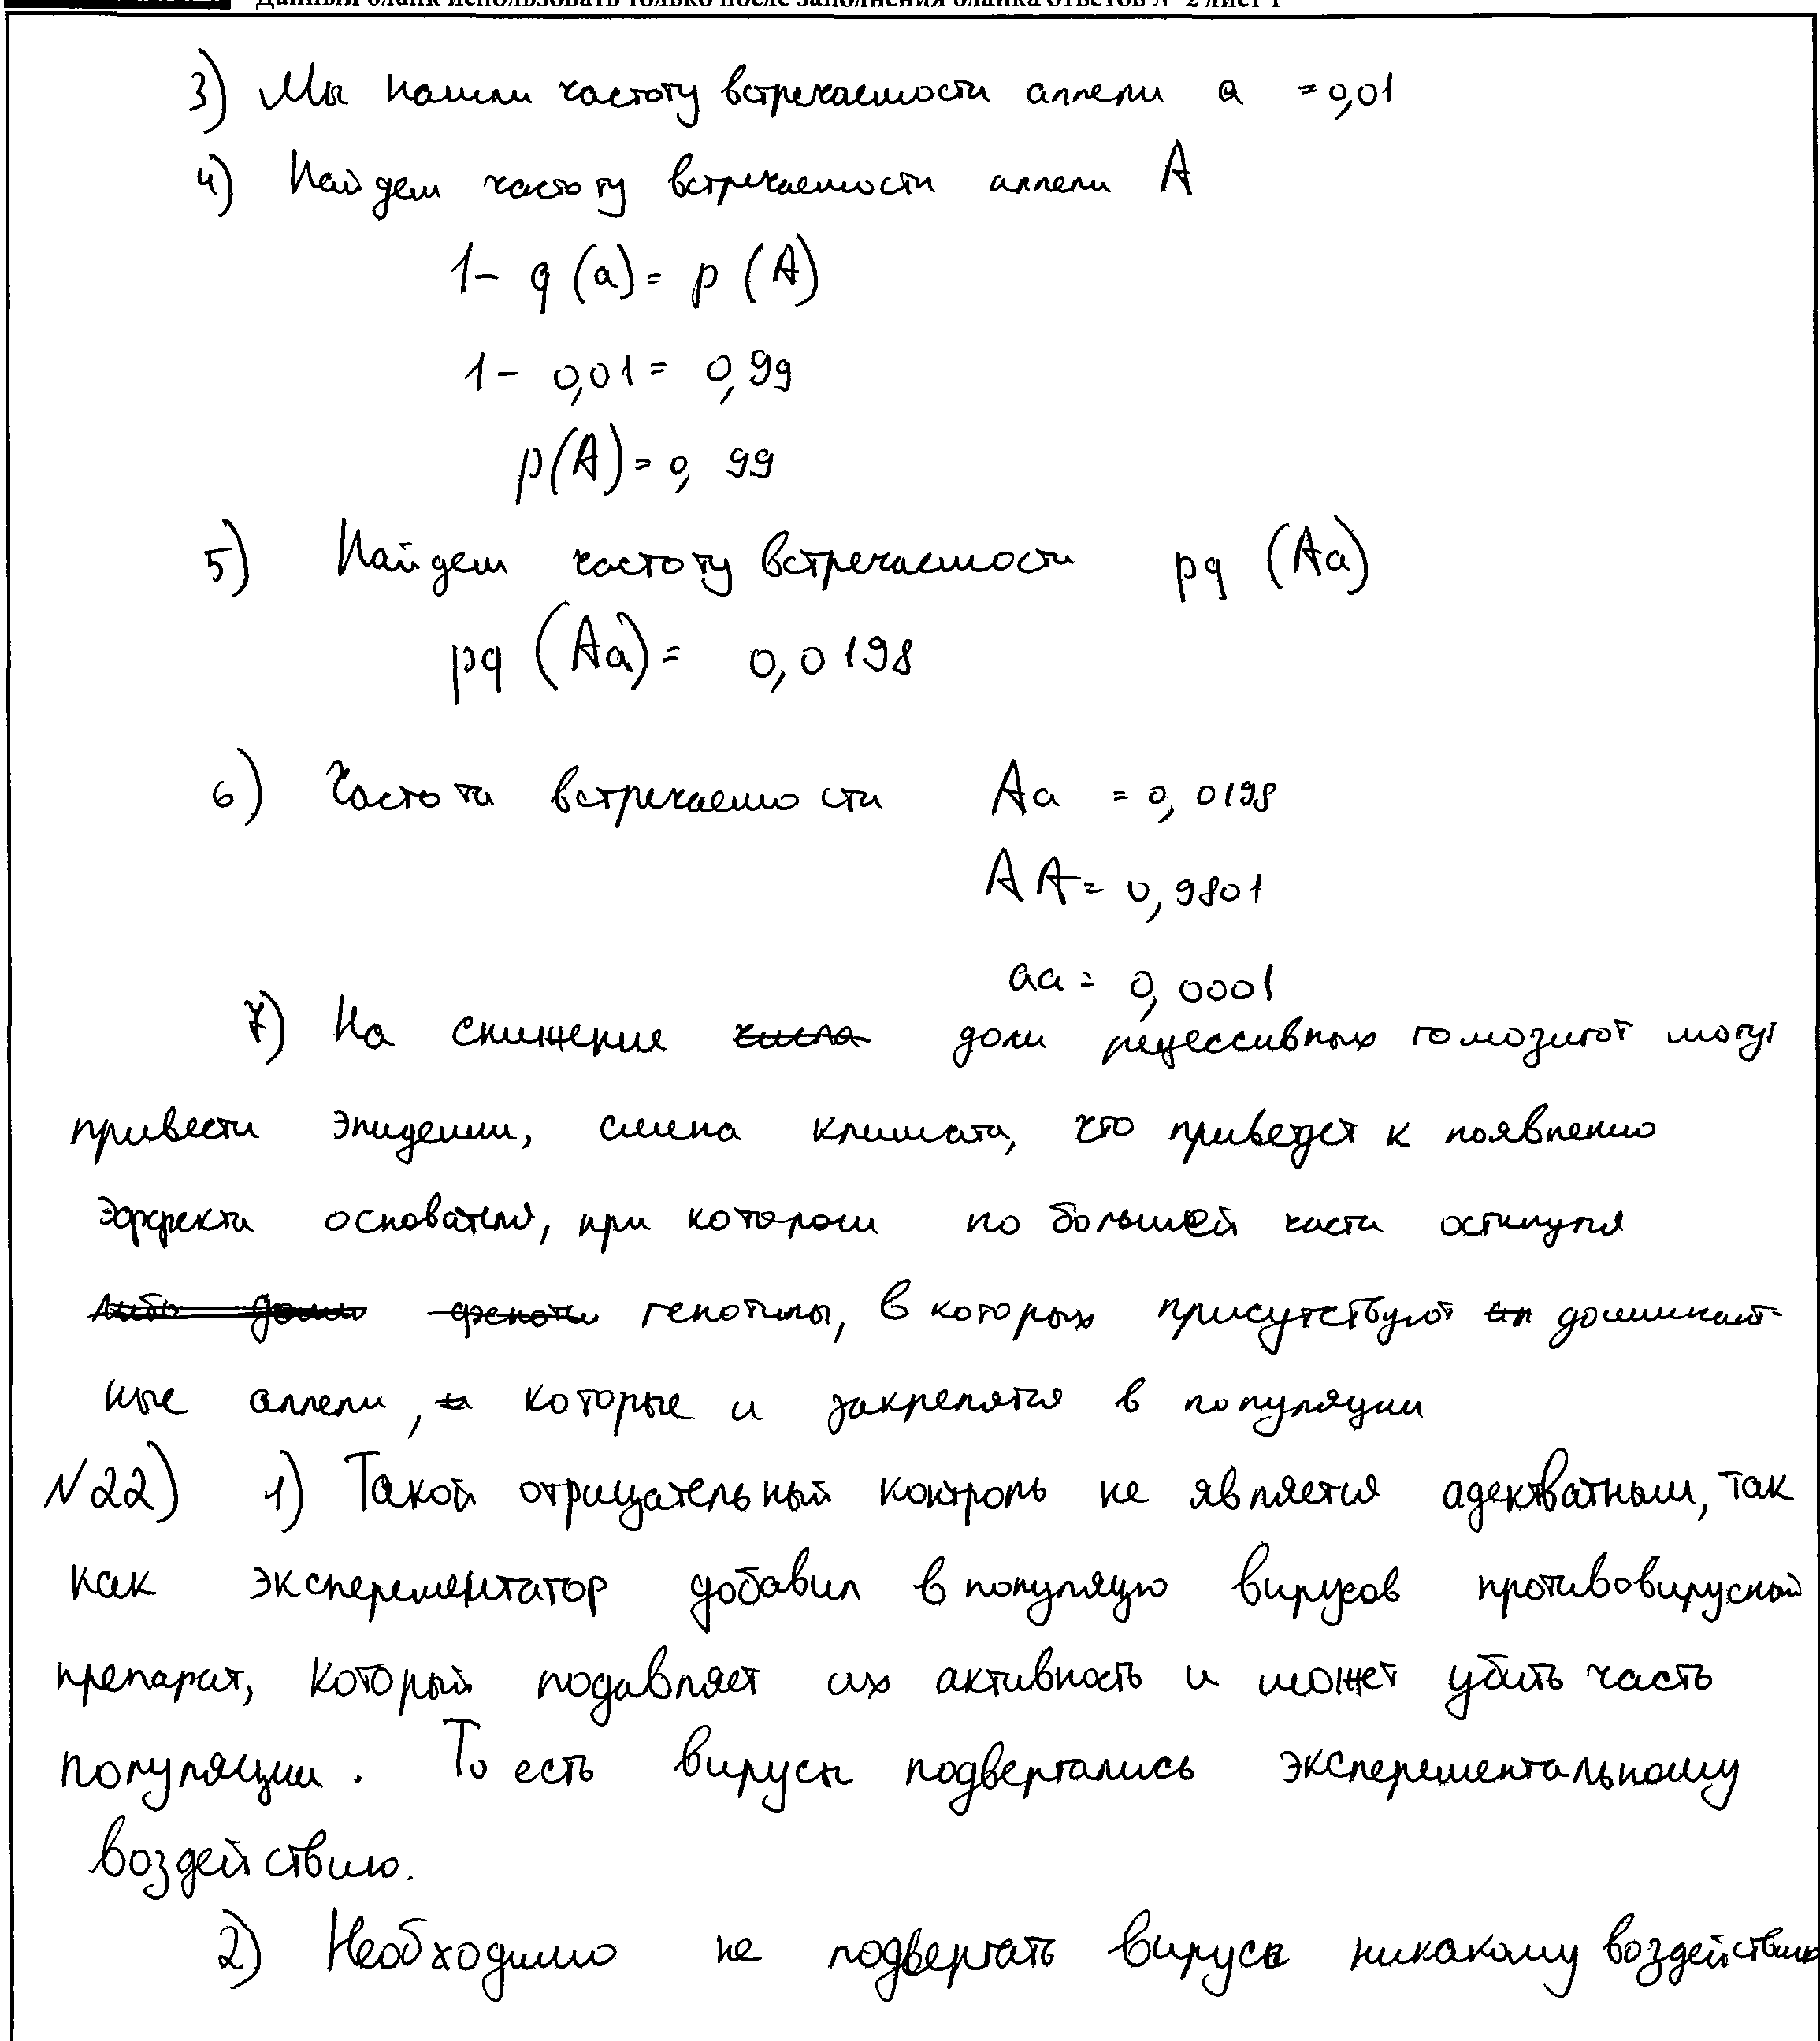 Данный бланк использовать только после заполнения бланка ответов № 2 лист 1
3) Мы нашли частоту встречаемости аллели a = 0,01
4) Найдем частоту встречаемости аллели A
1 - q (a) = p (A)
1 - 0,01 = 0,99
p(A) = 0, 99
5) Найдем частоту встречаемости pq (Aa)
pq (Aa) = 0,0198
6) Частота встречаемости Aa = 0,0198
AA = 0,9801
aa = 0,0001
7) На снижение числа доли рецессивных гомозигот могут
привести эпидемии, смена климата, что приведет к появлению
эффекта основателя, при котором по большей части останутся
либо доми феноти генотипы, в которых присутствуют доминант-
ные аллели, которые и закрепятся в популяции
№22) 1) Такой отрицательный контроль не является адектватным, так
как эксперементатор добавил в популяцию вирусов противовирусный
препарат, который подавляет их активность и может убить часть
популяции. То есть вирусы подвергались эксперементальному
воздействию.
2) Необходимо не подвергать вирусы никакому воздействию